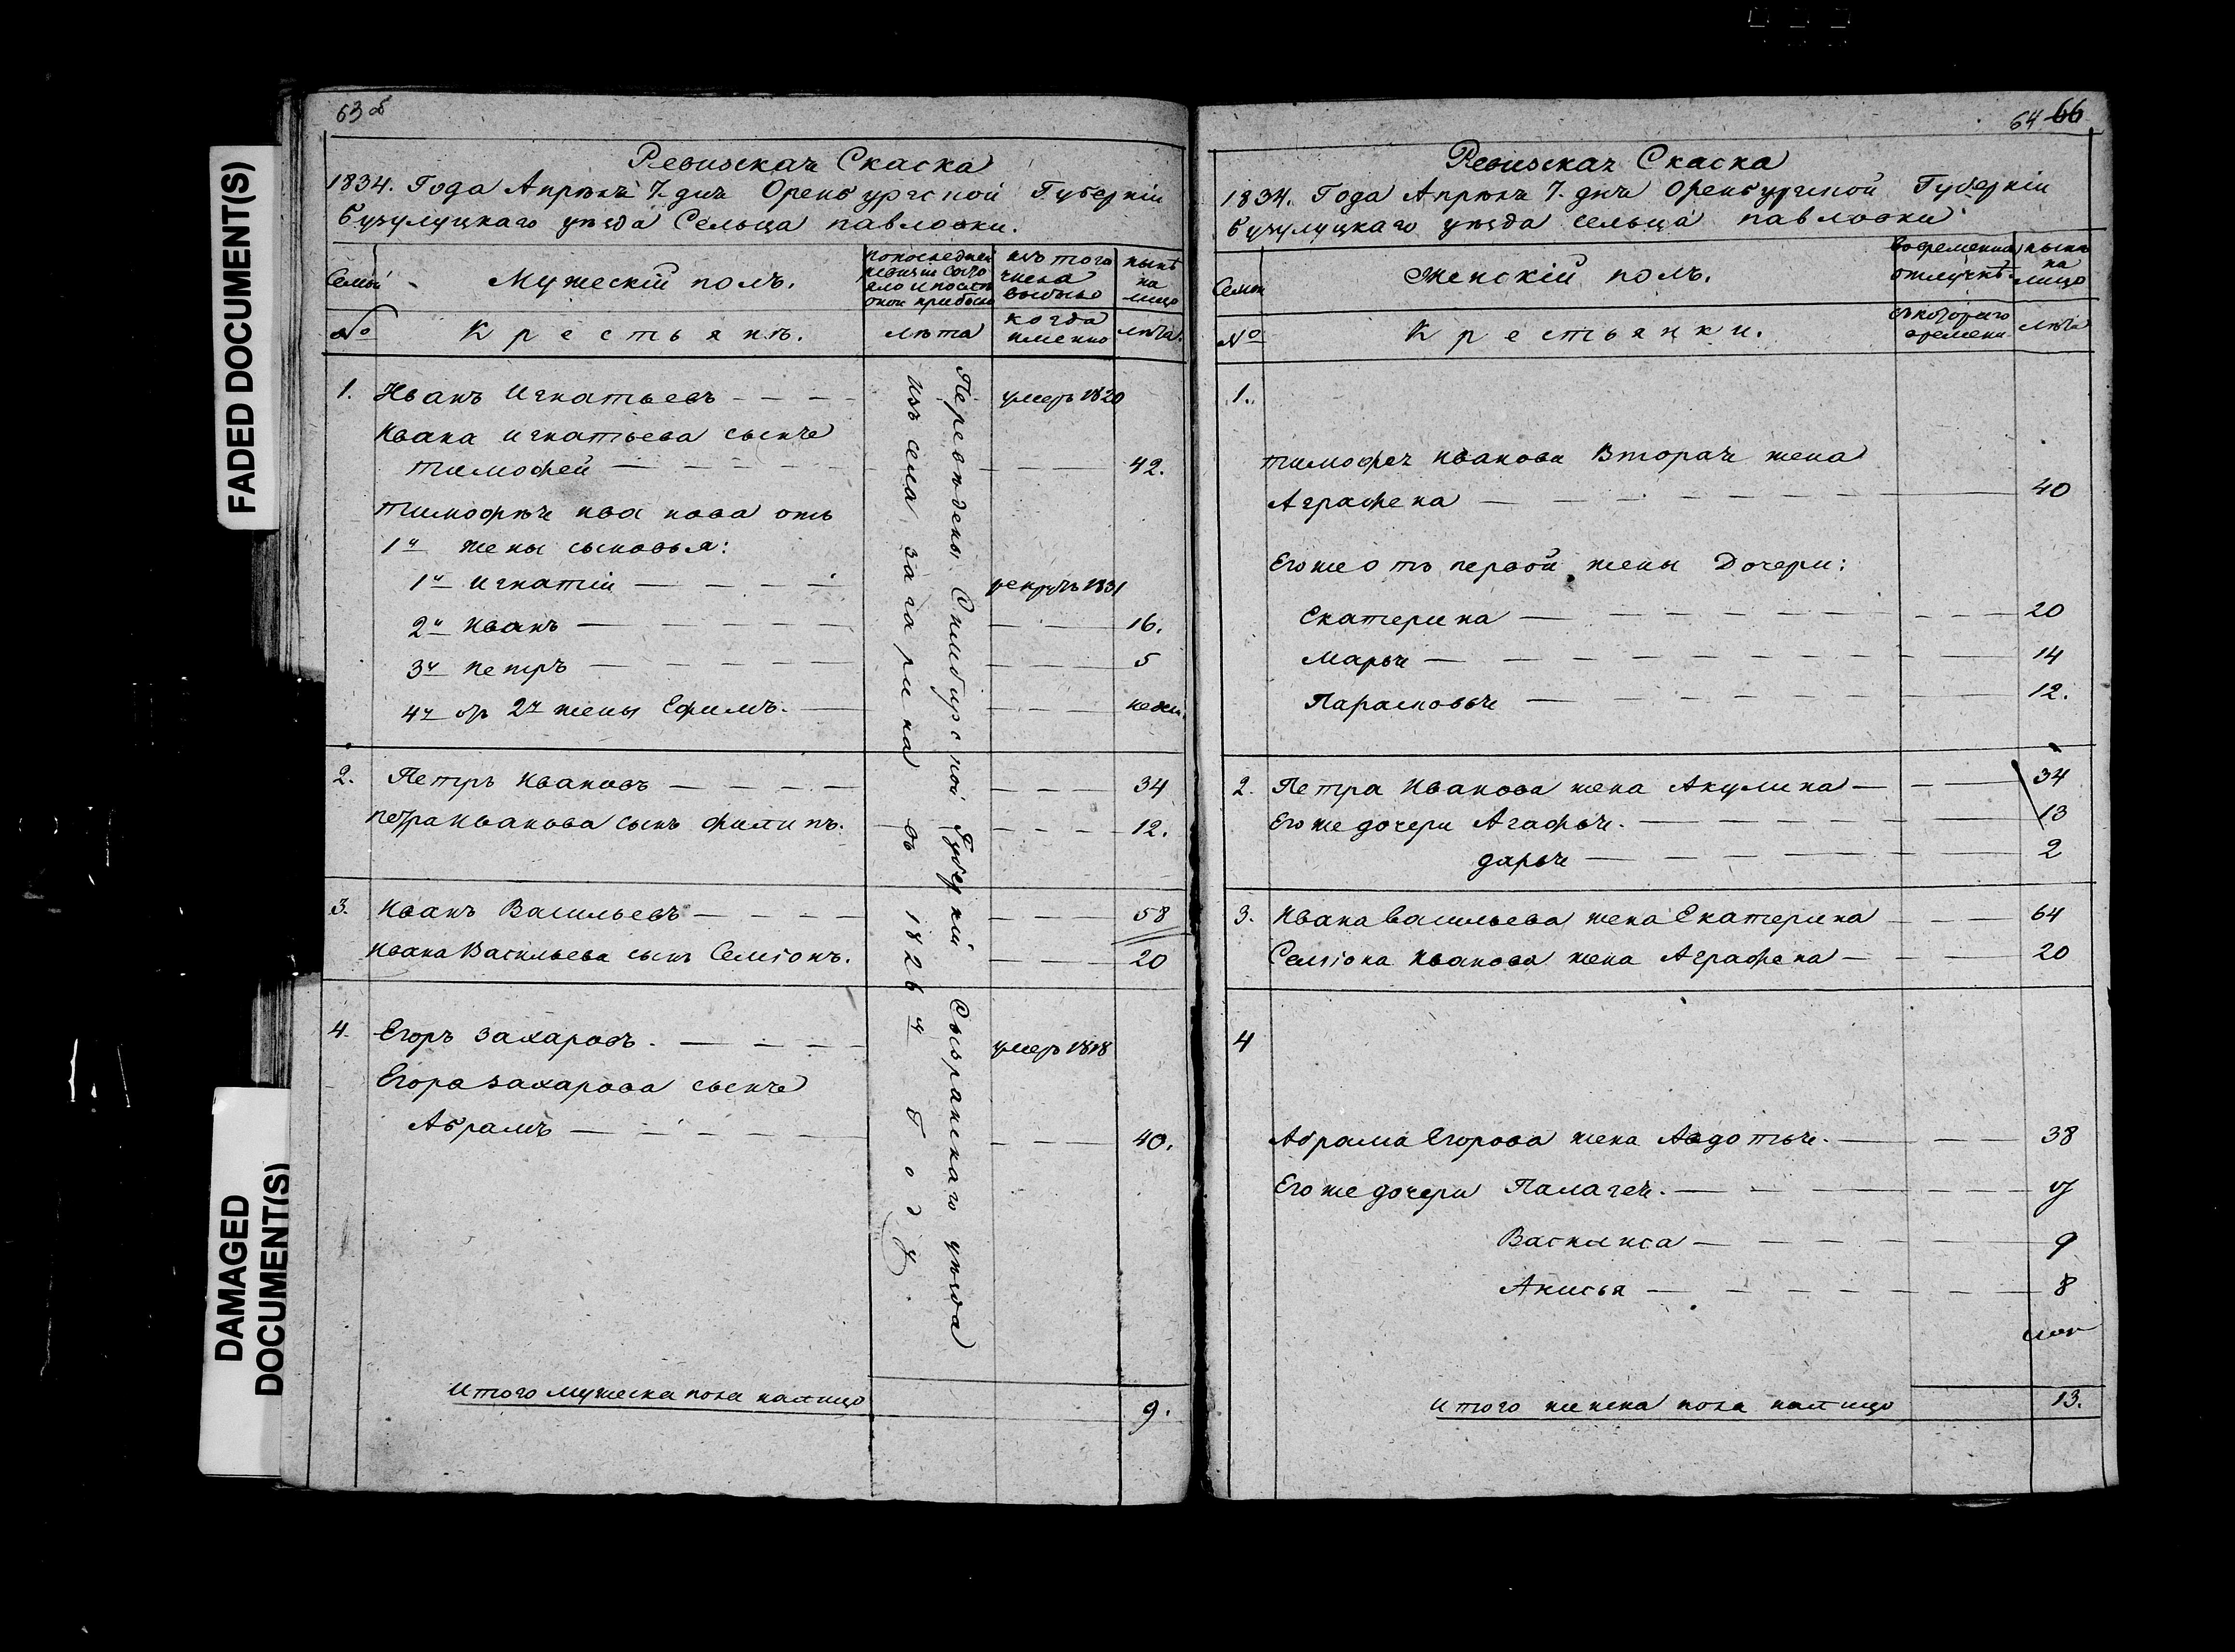 FADED DOCUMENT(S)
DAMAGED
DOCUMENT(S)
63 об
Ревизская Скаска
1834. Года Апрѣля 7. дня Оренбургской Губерніи
бузулуцкаго уѣзда Сельца павловки.
Семьи
Мужескій полъ.
попоследней
ревизіи состо
яло и послѣ
оной прибыло
изъ того
числа
выбыло
нынѣ
на
лицо
№
Крестьянъ.
лѣта
когда
именно
лѣта.
1. Иванъ Игнатьевъ умеръ 1820
Ивана игнатьева сынъ
тимофей 42.
тимофея ивановa отъ
1й жены сыновья:
1й Игнатій рекрутъ 1831
2й Иванъ 16.
3й петръ 5
4й отъ 2й жены Ефимъ. недел.
2. Петръ Ивановъ 34
петра Иванова сынъ филипъ. 12.
3. Иванъ Васильевъ 58
Ивана Васильева сынъ Семіонъ. 20
4. Егоръ Захаровъ. умеръ 1818
Егора захарова сынъ
Абрамъ 40.
Переведены Симбирской Губерніи Сызранскаго уѣзда
изъ села загарина въ 1826м Году.
Итого Мужеска пола налицо 9.
64 66
Ревизская Скаска
1834. Года Апрѣля 7. дня Оренбургской Губерніи
бузулуцкаго уѣзда сельца павловки
Семьи
Женскій полъ.
Вовременной
отлучкѣ.
нынѣ
на
лицо
№
Крестьянки.
съкотораго
времени
лѣта
1.
тимофея иванова Вторая жена
Аграфена 40
Егоже отъ первой жены Дочери:
Екатерина 20
Марья 14
Парасковья 12.
2. Петра Иванова жена Акулина 34
Егоже дочери Агафья. 13
дарья 2
3. Ивана васильева жена Екатерина 64
Семіона Иванова жена Аграфена 20
4
Абрама Егорова жена Авдотья. 38
Егоже дочери Палагея.
Василиса 9
Анисья 8
Итого женска пола налицо 13.